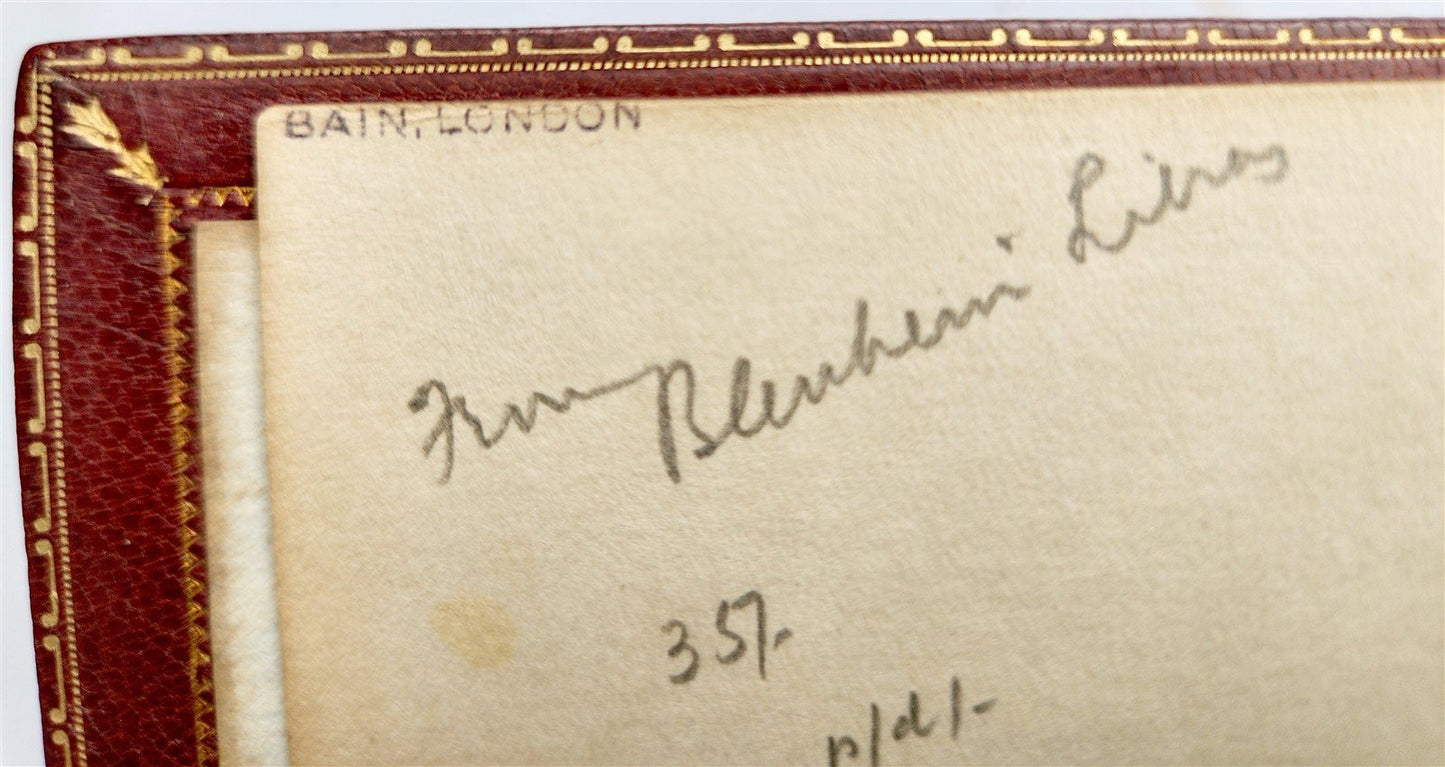 BAIN, LONDON
From Blenheim Library
35/-
p/d/-